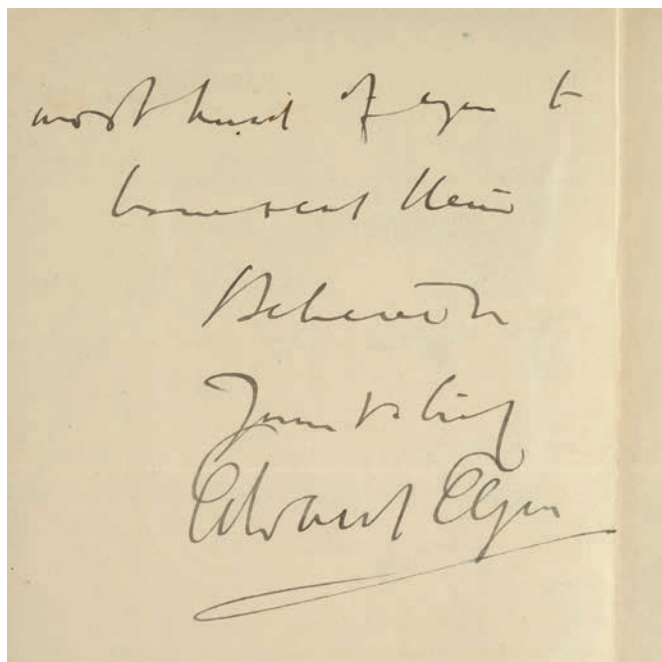 most kind of you to
have sent them
Believe me
Yours v. truly
Edward Elgar